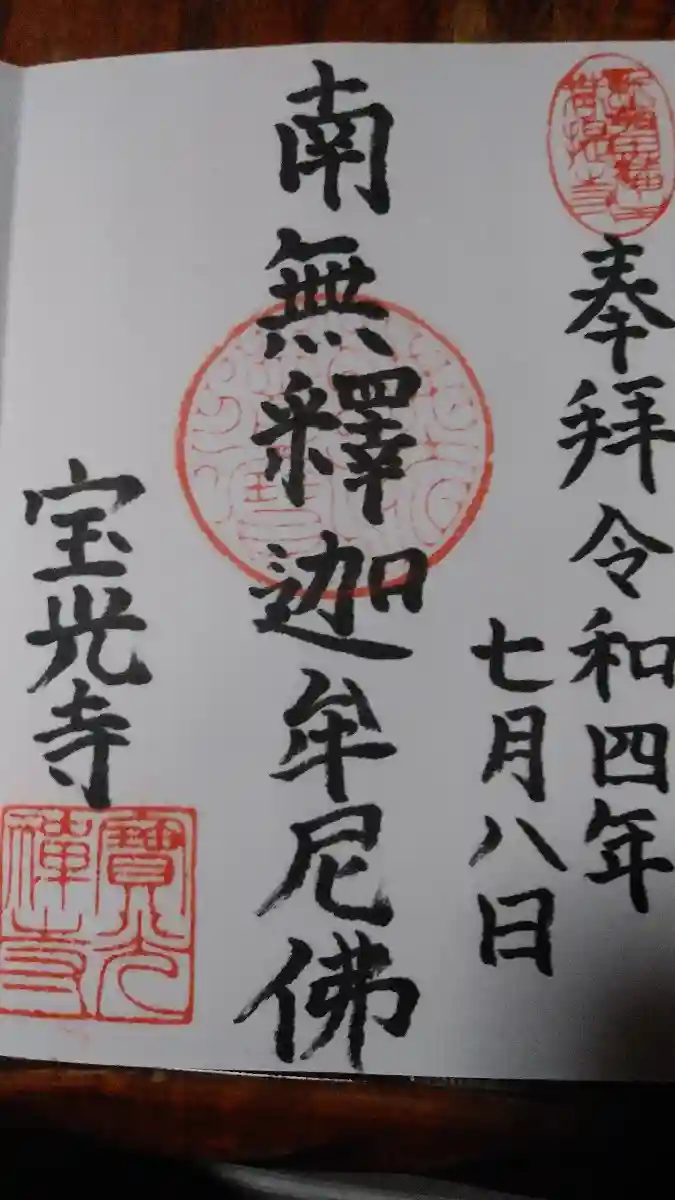 奉拝 令和四年
七月八日
南無釋迦牟尼佛
宝光寺
寶光
禅寺